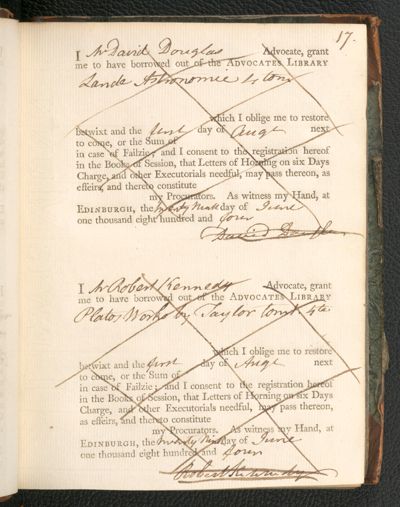 17.
I Mr David Douglas Advocate, grant
me to have borrowed out of the ADVOCATES LIBRARY
Lande Astronomie
which I oblige me to restore
betwixt and the first day of Augt next
to come, or the Sum of
in case of Failzie; and I consent to the registration hereof
in the Books of Session, that Letters of Horning on six Days
Charge, and other Executorials needful, may pass thereon, as
effeirs, and thereto constitute
my Procurators. As witness my Hand, at
EDINBURGH, the twenty Ninth day of June
one thousand eight hundred and four
David Douglas
I Mr Robert Kennedy Advocate, grant
me to have borrowed out of the ADVOCATES LIBRARY
Platos Works by Taylor 4to
which I oblige me to restore
betwixt and the first day of Augt next
to come, or the Sum of
in case of Failzie; and I consent to the registration hereof
in the Books of Session, that Letters of Horning on six Days
Charge, and other Executorials needful, may pass thereon,
as effeirs, and thereto constitute
my Procurators. As witness my Hand, at
EDINBURGH, the twenty Ninth day of June
one thousand eight hundred and four
Robert Kennedy